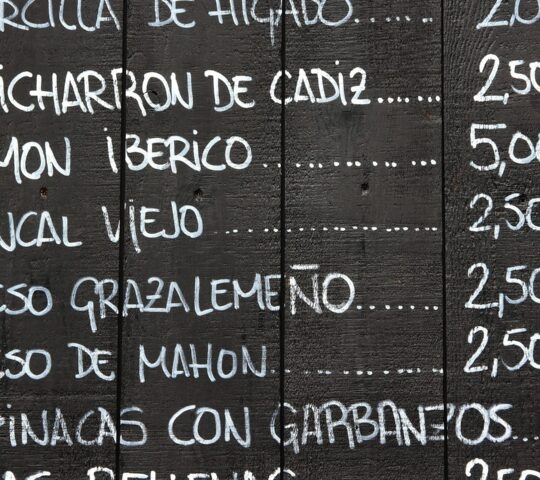 RCILLA DE HIGADO...... 2,0
ICHARRON DE CADIZ....... 2,50
MON IBERICO .......... 5,00
NCAL VIEJO ............... 2,50
ESO GRAZALEMEÑO....... 2,50
ESO DE MAHON............ 2,50
PINACAS CON GARBANZOS...
AS RELLENAS 2,50